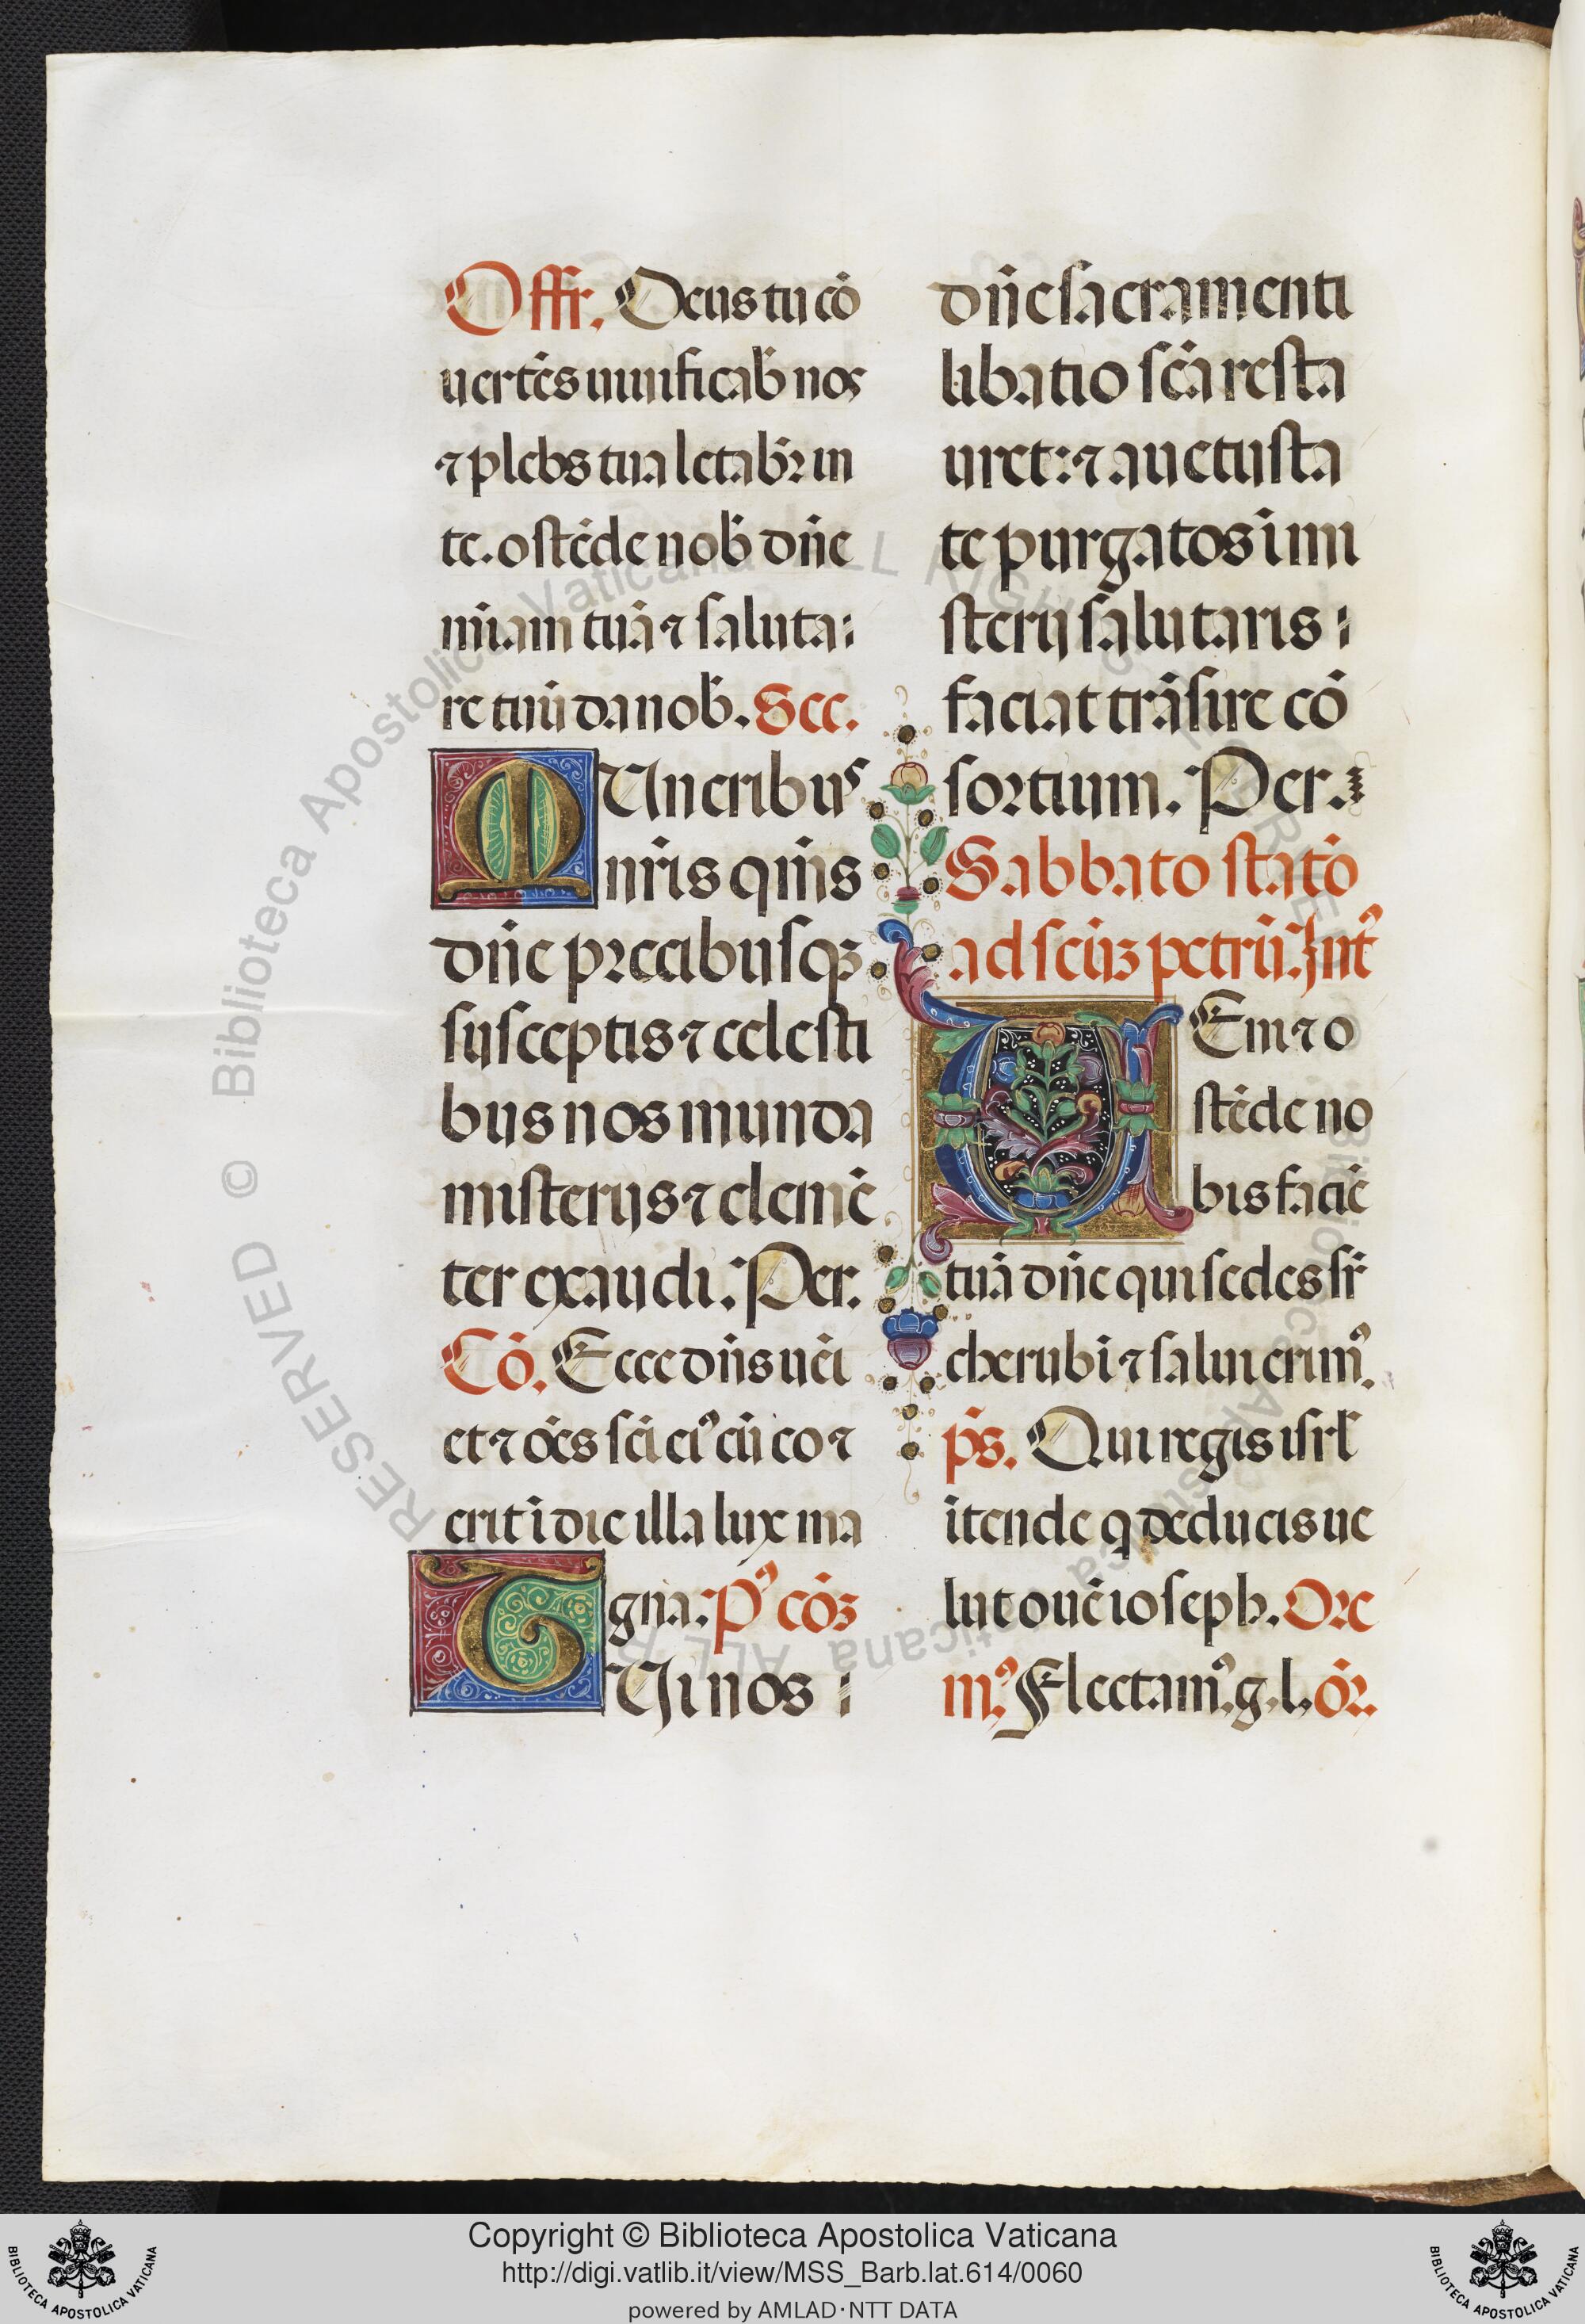 Offr. Deus tu cō
uertēs uiuificab̄ nos
⁊ plebs tua letabr̄ in
te. ostēde nob̄ dn̄e
mīam tuā ⁊ saluta⁝
re tuū da nob̄. Sec.
MUneribus
nr̄is qm̄s
dn̄e precibusqꝫ
susceptis ⁊ celesti
bus nos munda
misterijs ⁊ clemē
ter exaudi. Per.
Cō. Ecce dn̄s uēi
et ⁊ oēs sc̄i ei⁹ cū eo ⁊
erit ī die illa lux ma
gna. P⁹ cōꝫ
TUi nos ⁝
dn̄e sacramenti
libatio sc̄a resta
uret: ⁊ a uetusta
te purgatos ī mi
sterij salutaris ⁝
faciat trāsire cō
sortium. Per.
Sabbato statō
ad sc̄ūꝫ petrū. Int⁹
UEni ⁊ o
stēde no
bis faciē
tuā dn̄e qui sedes sr̄
cherubī ⁊ salui erim⁹.
ps̄. Qui regis isrl̄
ītende q̄ deducis ue
lut ouē ioseph. Ore
m⁹. Flectam⁹. g. l. or̄.
Copyright © Biblioteca Apostolica Vaticana
http://digi.vatlib.it/view/MSS_Barb.lat.614/0060
powered by AMLAD·NTT DATA
BIBLIOTECA APOSTOLICA VATICANA
BIBLIOTECA APOSTOLICA VATICANA